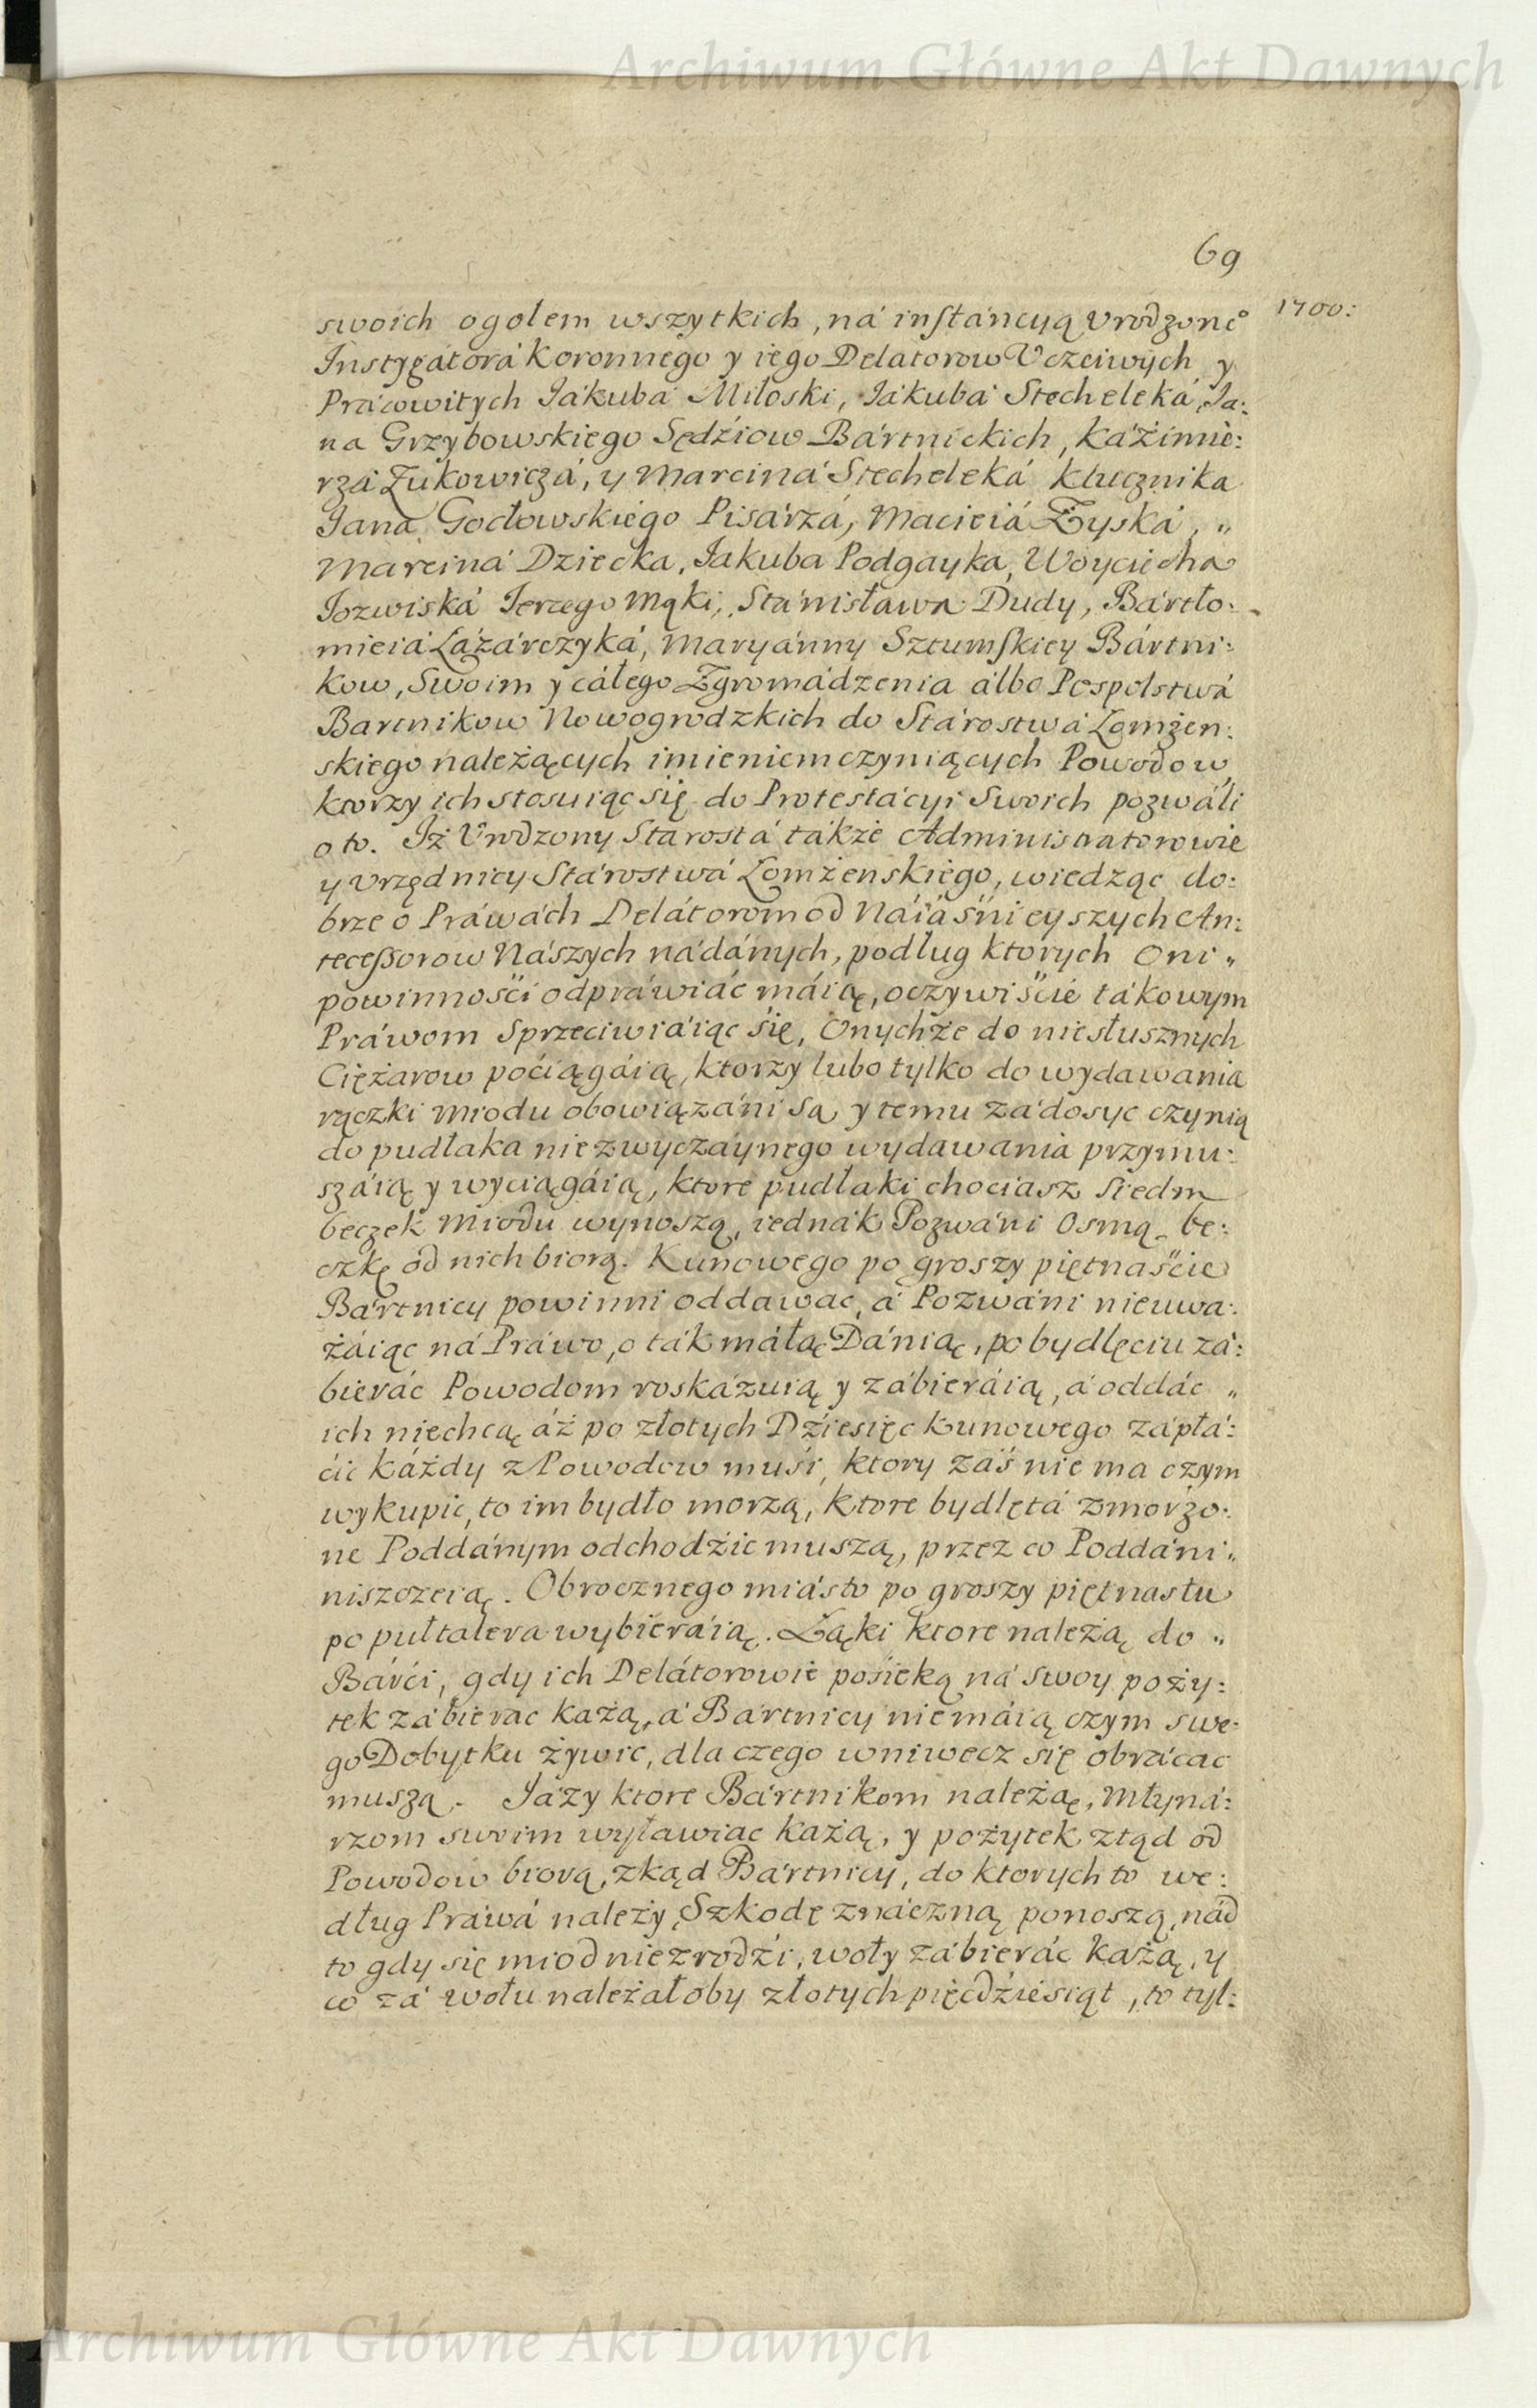 Archiwum Główne Akt Dawnych
69
1700:
swoich ogolem wszytkich, ná instáncyą Vrodzone°
Instygátorá Koronnego y iego Delatorow Vczciwych y
Prácowitych Iákubá Miłoski, Iákubá Stecheleká, Ia:
na Grzybowskiego Sędźiow Bártnickich, Káźimie:
rzá Żukowiczá, y Marciná Stecheleká Klucznika
Janá Gocłowskiego Pisárzá, Macieiá Zyská, „
Marciná Dziecka, Jakuba Podgayka, Woyciecha
Jozwiská Jerzego Mąki, Stánisława Dudy, Bárcło:
mieiá Lázárczyká, Máryánny Szcumskiey Bártni:
kow, Swoim y cáłego Zgromádzenia álbo Pospolstwá
Bartnikow Nowogrodzkich do Stárostwá Łomżen:
skiego należących imieniem czyniących Powodow,
ktorzy ich stosuiąc się do Protestácyi Swoich pozwáli
o to. Iż Vrodzony Starostá tákże Administratorowie
y Vrzędnicy Stárostwá Łomżenskiego, wiedząc do:
brze o Práwách Delátorom od Náiáśnieyszych An:
tecessorow Nászych nádánych, podług ktorych Oni „
powinnośći odpráwiáć máią, oczywiśćie tákowym
Práwom Sprzeciwiáiąc śię, Onychże do niesłusznych
Ciężarow poćiągáią, ktorzy lubo tylko do wydawania
rączki Miodu obowiązáni Są y temu zádosyc czynią
do pudłaka niezwyczáynego wydawania przymu:
száią y wyciągáią, ktore pudłaki chociasz Siedm
beczek Miodu wynoszą, iednák Pozwáni Osmą be:
czkę od nich biorą. Kunowego po groszy piętnaśćie
Bártnicy powinni oddawac, á Pozwáni nieuwa:
żáiąc ná Práwo, o ták máłą Dánią, po bydlęciu zá:
bieráć Powodom roskázuią y zábieráią, á oddáć „
ich niechcą áż po złotych Dźiesięc kunowego zápłá:
ćić káżdy z Powodow muśi, ktory záś nie ma czym
wykupic, to im bydło morzą, ktore bydlętá zmorzo:
ne Poddánym odchodźic muszą, przez co Poddáni „
niszczeią. Obrocznego miásto po groszy piętnastu
po pułtalera wybieráią. Łąki ktore należą do „
Bárći, gdy ich Delátorowie pośieką ná swoy poży:
tek zábierac każą, á Bártnicy niemáią czym swe:
go Dobytku żywic, dla czego wniwecz się obrácac
muszą. Jázy ktore Bártnikom należą, Młyná:
rzom swoim wyławiac każą, y pożytek ztąd od
Powodow biorą, zkąd Bártnicy, do ktorych to we:
dług Práwá należy, Szkodę znáczną ponoszą, nád
to gdy się miod niezrodźi, woły zábieráć każą, y
co zá wołu należałoby złotych pięcdźiesiąt, to tyl:
Archiwum Główne Akt Dawnych